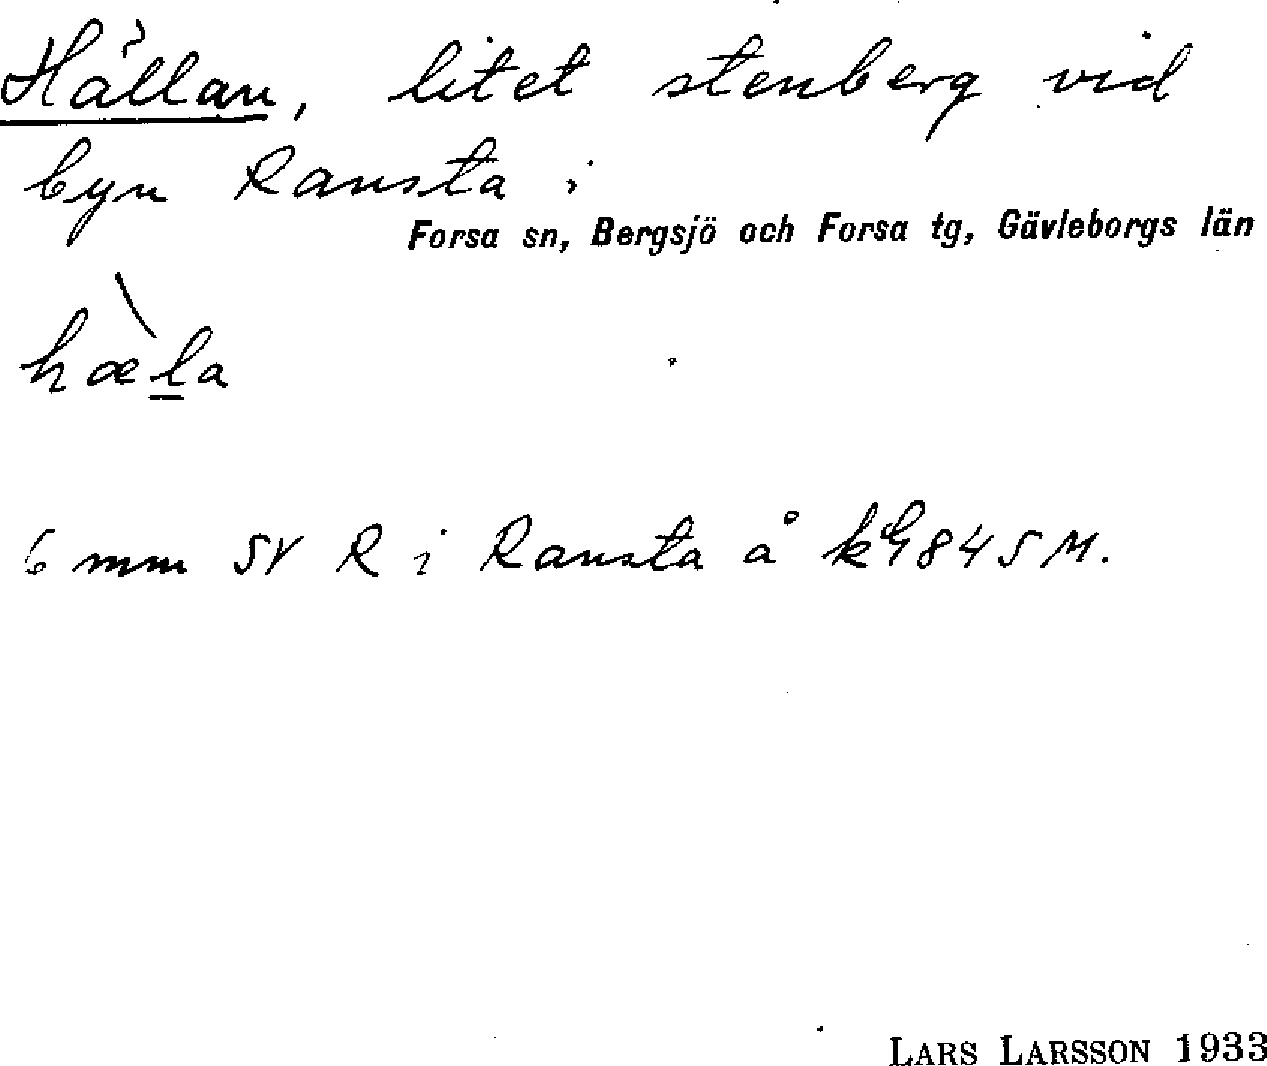 Hällan, litet stenberg vid
byn Ransta i
Forsa sn, Bergsjö och Forsa tg, Gävleborgs län
hæ̀la
6 mm SV R i Ransta å kG 845 M.
LARS LARSSON 1933